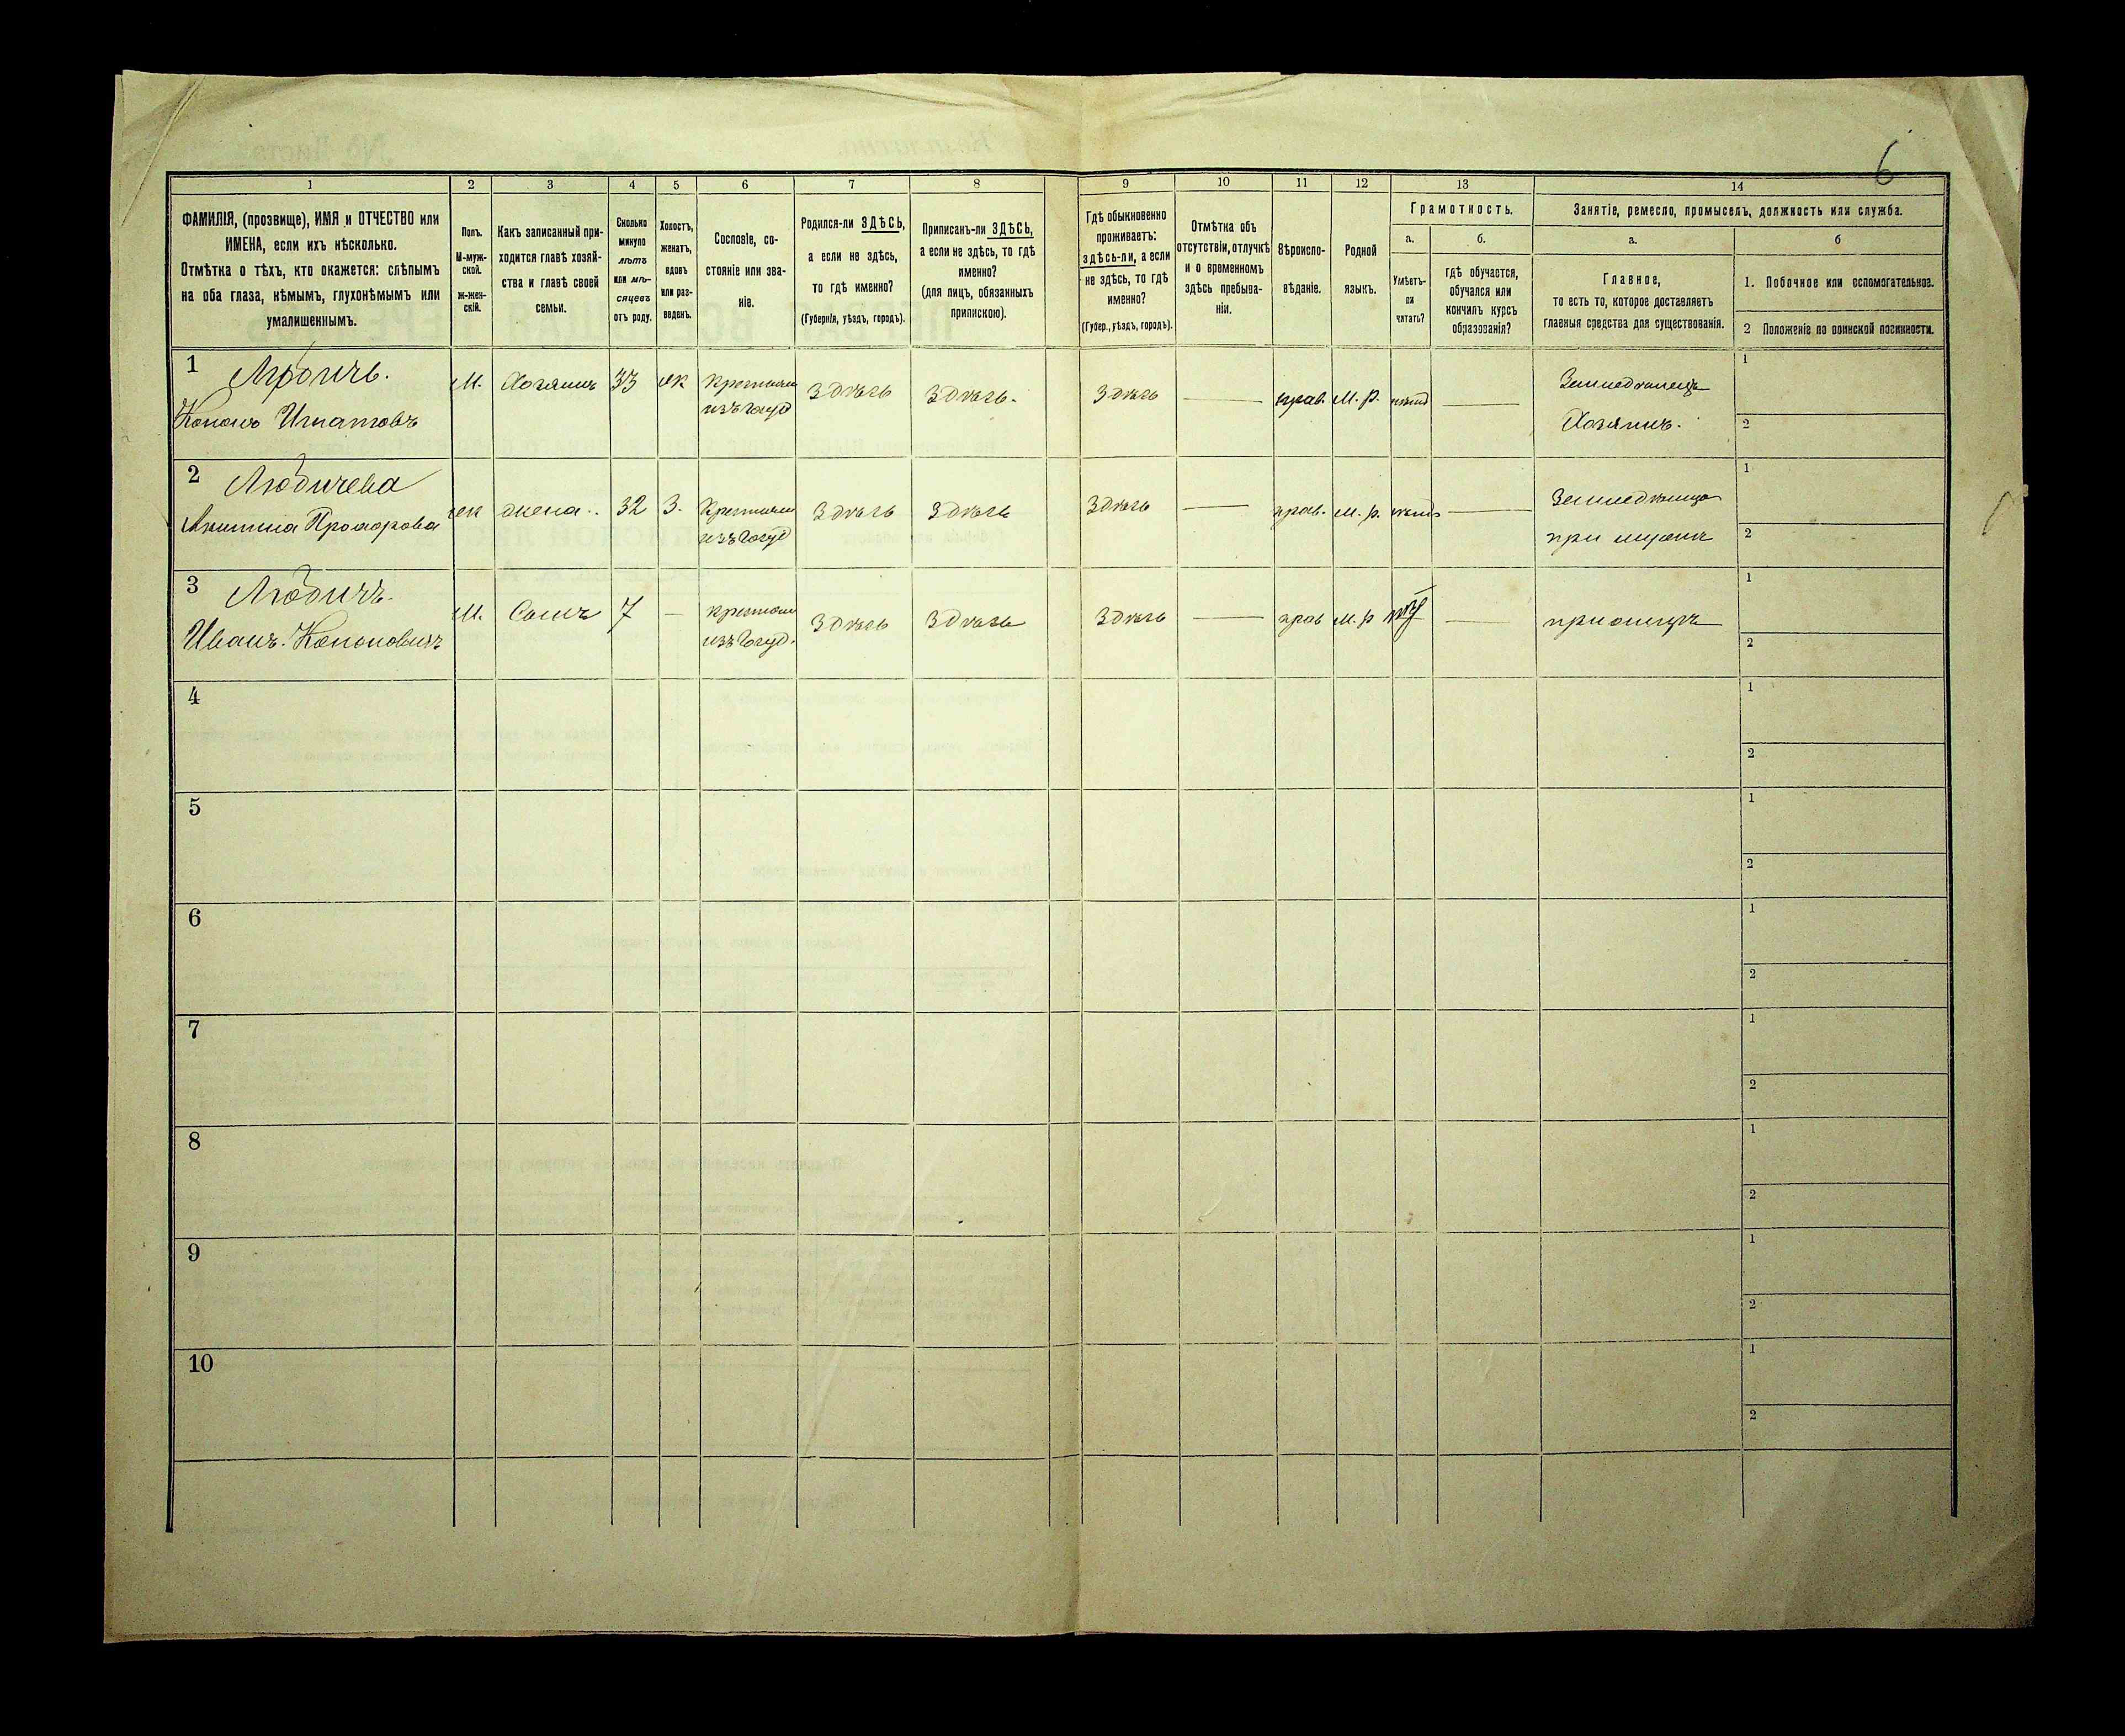 6
1
2
3
4
5
6
7
8
9
10
11
12
13
14
ФАМИЛІЯ, (прозвище), ИМЯ и ОТЧЕСТВО или
ИМЕНА, если ихъ нѣсколько.
Отмѣтка о тѣхъ, кто окажется: слѣпымъ
на оба глаза, нѣмымъ, глухонѣмымъ или
умалишеннымъ.
Полъ.
М-муж-
ской.
ж-жен-
скій.
Какъ записанный при-
ходится главѣ хозяй-
ства и главѣ своей
семьи.
Сколько
минуло
лѣтъ
или мѣ-
сяцевъ
отъ роду.
Холостъ,
женатъ,
вдовъ
или раз-
веденъ.
Сословіе, со-
стояніе или зва-
ніе.
Родился-ли ЗДѢСЬ,
а если не здѣсь,
то гдѣ именно?
(Губернія, уѣздъ, городъ).
Приписанъ-ли ЗДѢСЬ,
а если не здѣсь, то гдѣ
именно?
(для лицъ, обязанныхъ
припискою).
Гдѣ обыкновенно
проживаетъ:
здѣсь-ли, а если
не здѣсь, то гдѣ
именно?
(Губер., уѣздъ, городъ).
Отмѣтка объ
отсутствіи, отлучкѣ
и о временномъ
здѣсь пребыва-
ніи.
Вѣроиспо-
вѣданіе.
Родной
языкъ.
Грамотность.
а.
Умѣетъ-
ли
читать?
б.
гдѣ обучается,
обучался или
кончилъ курсъ
образованія?
Занятіе, ремесло, промыселъ, должность или служба.
а.
Главное,
то есть то, которое доставляетъ
главныя средства для существованія.
б
1. Побочное или вспомогательное.
2 Положеніе по воинской повинности.
1
Людичъ.
Кононъ Игнатовъ
М. Хозяинъ 33 ж Крестьян
изъ Госуд
Здѣсь Здѣсь. Здѣсь — прав. М. р. нѣтъ —
Земледѣлецъ
Хозяинъ.
1
2
2
Людичева
Прохорова
ж жена. 32 З. Крестьян
изъ Госуд
Здѣсь Здѣсь Здѣсь — прав. М. р. нѣтъ —
при мужѣ
1
2
3
Людичъ.
Иванъ. Кононовичъ
М. Сынъ 7 — крестьян
изъ Госуд.
Здѣсь Здѣсь Здѣсь — прав М. р —
при отцѣ
1
2
4
1
2
5
1
2
6
1
2
7
1
2
8
1
2
9
1
2
10
1
2